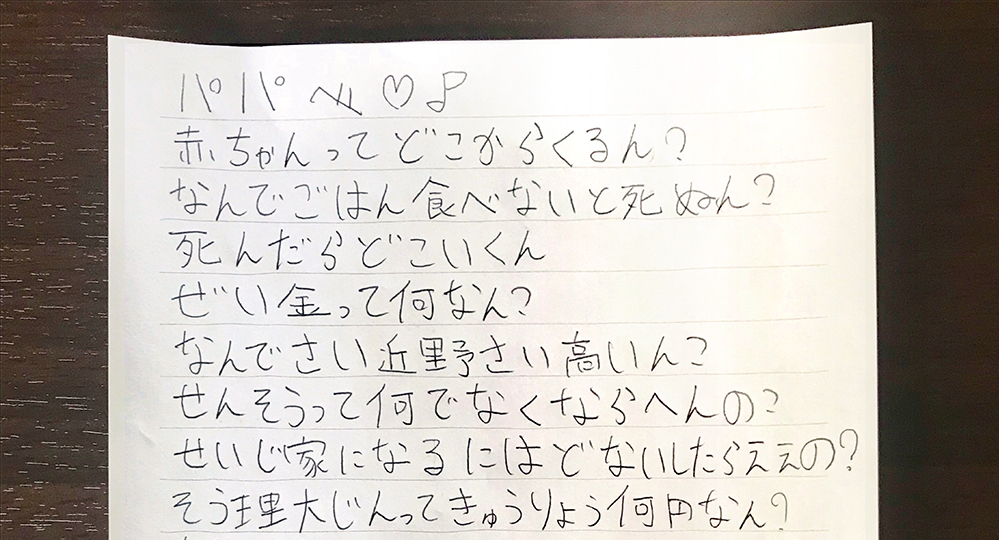 パパへ♡♪
赤ちゃんってどこからくるん?
なんでごはん食べないと死ぬん?
死んだらどこいくん
ぜい金って何なん?
なんでさい近野さい高いん?
せんそうって何でなくならへんの?
せいじ家になるにはどないしたらええの?
そう理大じんってきゅうりょう何円なん?